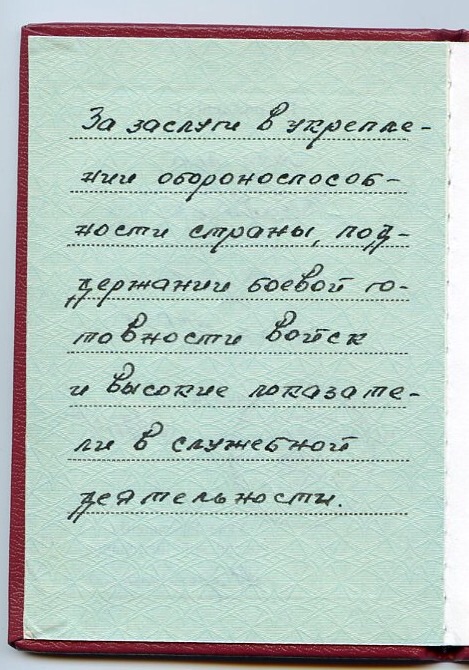 За заслуги в укрепле-
нии обороноспособ-
ности страны, под-
держании боевой го-
товности войск
и высокие показате-
ли в служебной
деятельности.